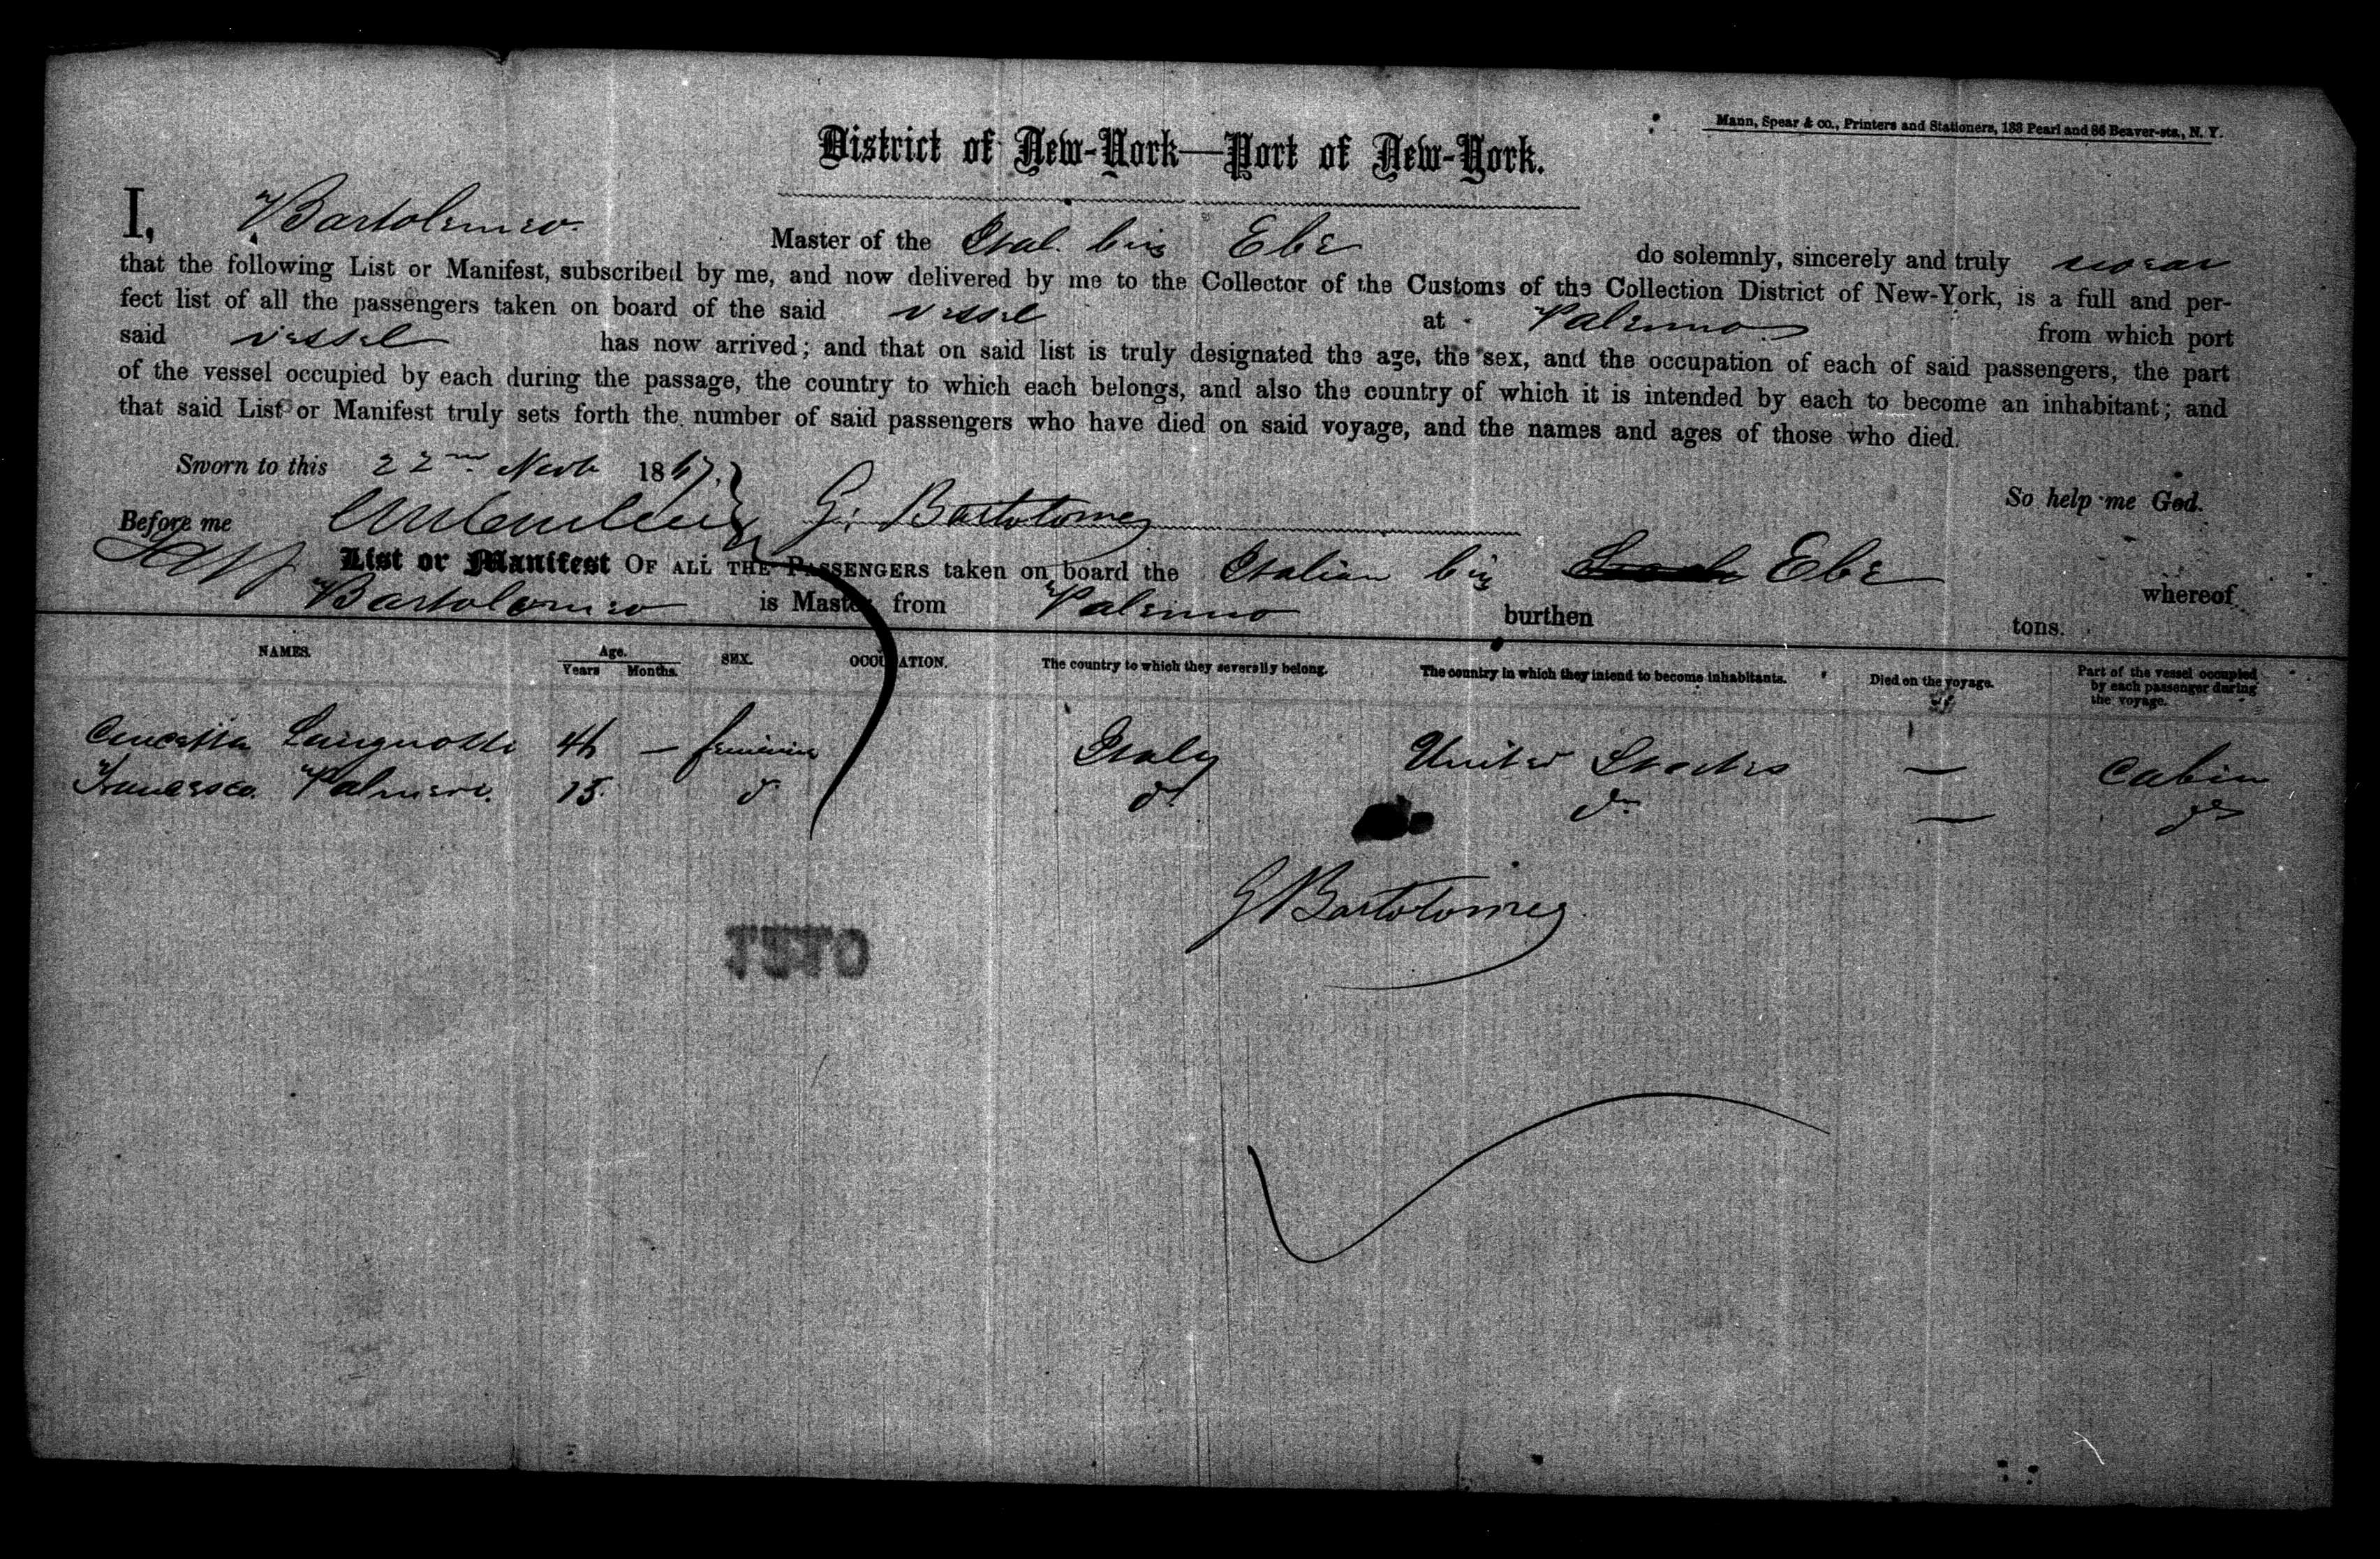 Mann, Spear & co., Printers and Stationers, 133 Pearl and 86 Beaver-sts., N. Y.
District of New-York—Port of New-York.
I, Bartolomeo Master of the Ital. brig Ebe do solemnly, sincerely and truly swear
that the following List or Manifest, subscribed by me, and now delivered by me to the Collector of the Customs of the Collection District of New-York, is a full and per-
fect list of all the passengers taken on board of the said vessel at Palermo from which port
said vessel has now arrived; and that on said list is truly designated the age, the sex, and the occupation of each of said passengers, the part
of the vessel occupied by each during the passage, the country to which each belongs, and also the country of which it is intended by each to become an inhabitant; and
that said List or Manifest truly sets forth the number of said passengers who have died on said voyage, and the names and ages of those who died.
Sworn to this 22nd Novb 1867. So help me God.
Before me G. Bartolomeo
List or Manifest OF ALL THE PASSENGERS taken on board the Italian brig Ebe whereof
Bartolomeo is Master from Palermo burthen tons.
NAMES. Age. Years Months. SEX. OCCUPATION. The country to which they severally belong. The country in which they intend to become inhabitants. Died on the voyage. Part of the vessel occupied by each passenger during the voyage.
— feminine Italy United States — Cabin
Francesco Palmeri. 15. do do do — do
G Bartolomeo
1210